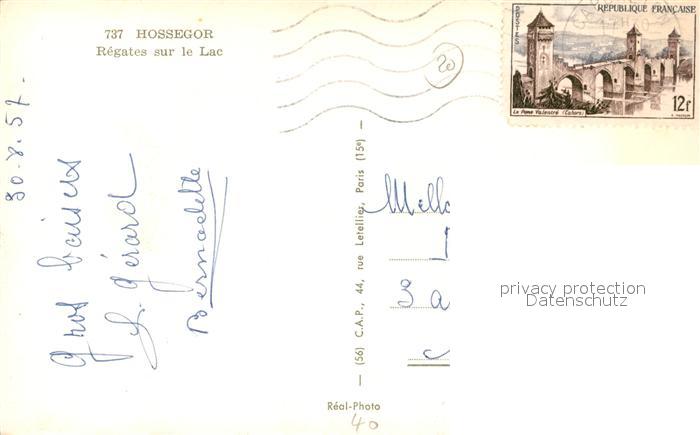 737 HOSSEGOR
Régates sur le Lac
20
POSTES
RÉPUBLIQUE FRANÇAISE
Le Pont Valentré (Cahors)
12f
30.8.57.
gros baisers
Gérard
Bernadette
— (56) C.A.P., 44, rue Letellier, Paris (15e) —
Mell
privacy protection
Datenschutz
Réal-Photo
40